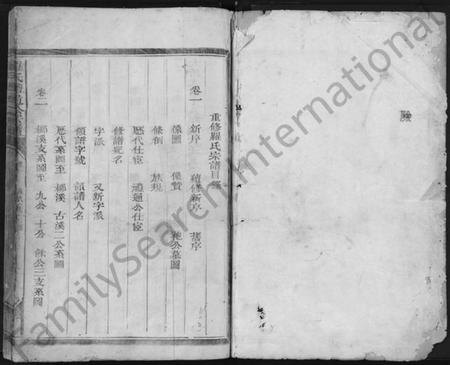 重修羅氏宗譜目錄
卷一
新序 續修新序 舊序
像圖 像贊 公墓圖
條例 族規
歷代仕宦 通公仕宦
修譜宛名
字派 又新字派
領譜字號 領譜人名
歷代系圖至 柳溪 古溪二公系圖
卷一
柳溪支系圖至 九公 十公 公三支系圖
FamilySearch International